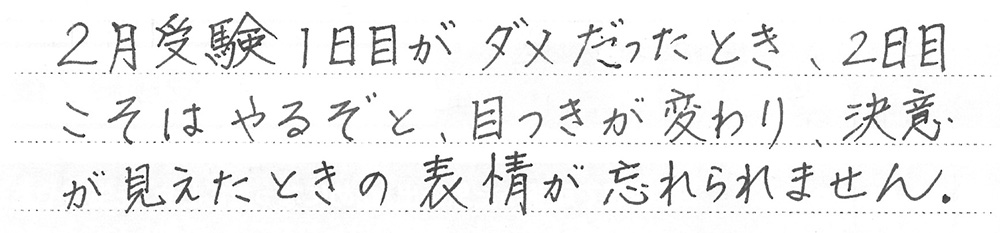 2月受験1日目がダメだったとき、2日目
こそはやるぞと、目つきが変わり、決意
が見えたときの表情が忘れられません。